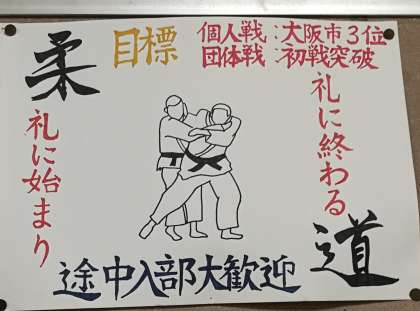 柔道
目標
個人戦:大阪市3位
団体戦:初戦突破
礼に始まり
礼に終わる
途中入部大歓迎